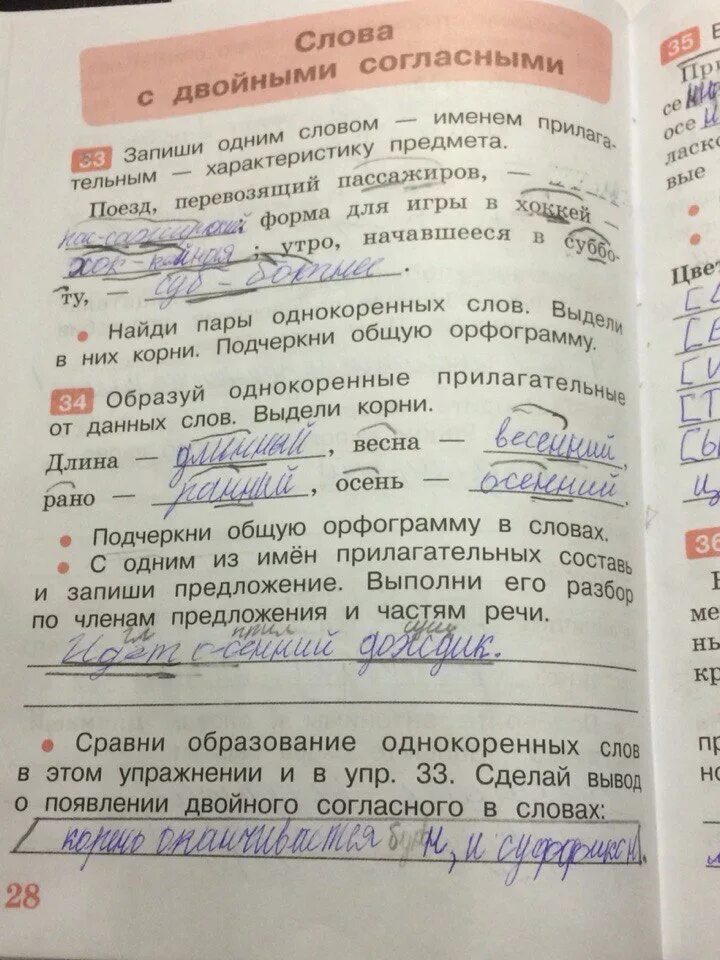 Слова
с двойными согласными
33 Запиши одним словом — именем прилага-
тельным — характеристику предмета.
Поезд, перевозящий пассажиров, —
пас-сажирский форма для игры в хоккей —
хок-кейная ; утро, начавшееся в суббо-
ту, — суб-ботнее .
• Найди пары однокоренных слов. Выдели
в них корни. Подчеркни общую орфограмму.
34 Образуй однокоренные прилагательные
от данных слов. Выдели корни.
Длина — длинный , весна — весенний ,
рано — ранний , осень — осенний .
• Подчеркни общую орфограмму в словах.
• С одним из имён прилагательных составь
и запиши предложение. Выполни его разбор
по членам предложения и частям речи.
гл сущ
Идёт осенний дождик.
• Сравни образование однокоренных слов
в этом упражнении и в упр. 33. Сделай вывод
о появлении двойного согласного в словах:
корень оканчивается н, и суффикс н.
28
35
При
се
осе
ласко
вые
•
•
Цвет
36
ме
ны
кр
пр
но